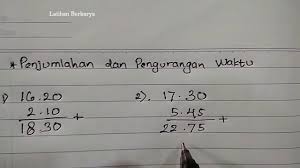 Latihan Berkarya
* Penjumlahan dan Pengurangan Waktu
1) 16.20 2). 17.30
2.10 + 5.45 +
18.30 22.75